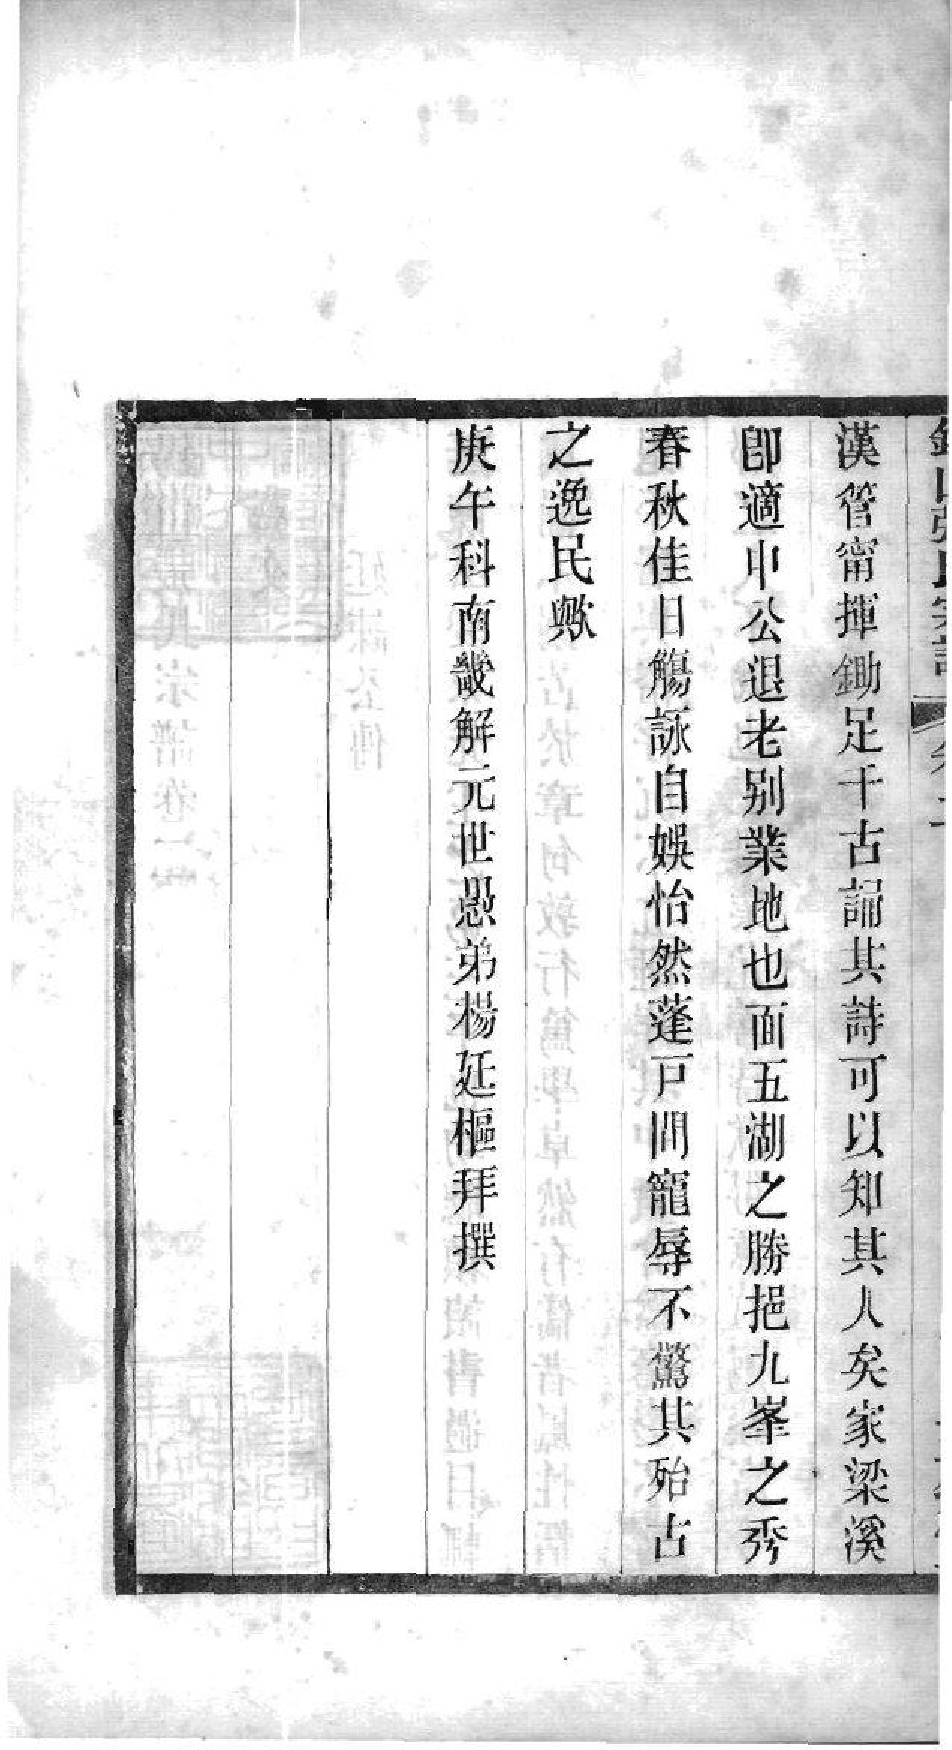 漢管甯揮鋤足千古誦其詩可以知其人矣家梁溪
卽適中公退老别業地也面五湖之勝挹九峯之秀
春秋佳日觴詠自娛怡然蓬戸間寵辱不驚其殆古
之逸民歟
庚午科南畿解元世愚弟楊廷樞拜撰